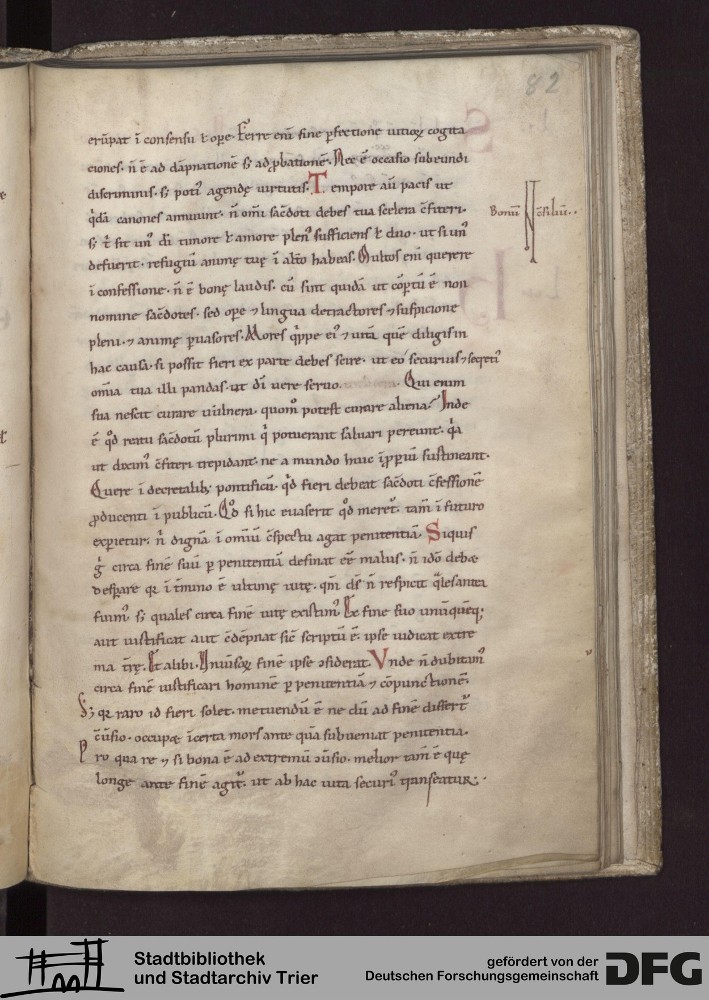 82
erūpat ī consensu ł ope. Ferre enī sine pfectione uitioꝝ cogita
ciones. n̄ ē ad dāpnationē sꝫ ad ꝓbationē. Nec ē occasio subeundi
discriminis. sꝫ poti᾽ agendę uirtutis. Tempore aū pacis ut
q̄dā canones annuunt. n̄ omī sac̄doti debes tua scelera c̄fiteri.
defuerit. refugiū animę tuę ī alt̄o habeas. Multos enī querere
ī confessione. n̄ ē bonę laudis. cū sint quidā ut cōptū ē non
nomine sac̄dotes. sed ope ⁊ lingua detractores ⁊ suspicione
pleni. ⁊ animę puasores. Mores q̄ppe ei᾽ ⁊ uitā quē diligis in
hac causa. si possit fieri ex parte debes scire. ut eo᾽ securius ⁊ secreti᾽
om̄ia tua illi pandas. ut dī uere seruo. Qui enim
sua nescit curare uulnera. quom᾽ potest curare aliena? Inde
ē qd̄ reatu sac̄dotū plurimi q̄ potuerant saluari pereunt. q̄a
ut dixim᾽ c̄fiteri trepidant. ne a mundo huic īpperiū sustineant.
Quere ī decretalibꝫ pontificū. q̄d fieri debeat sac̄doti c̄fessionē
ꝓducenti ī publicū. Qd̄ si hic euaserit qd̄ meret᾽. tam̄ ī futuro
experietur. n̄ dignā ī omiū c̄spectu agat penitentiā. Siquis
g̊ circa finē suū p penitentiā desinat eē malus. n̄ idō debet
despare qꝛ ī t̄mino ē ultimę uitę. qm̄ ds̄ n̄ respicit q̄les antea
fuim᾽ sꝫ quales circa finē uitę existim᾽. Ex fine suo unūquēqꝫ
aut iustificat aut c̄dēpnat sic̄ scriptū ē. ipse iudicat extre
ma t̄rę. Et alibi. Uniūsoꝝ finē ipse ↄsiderat. Unde n̄ dubitam᾽
circa finē iustificari hominē p penitentiā ⁊ cōpunctionē.
Sꝫ qꝛ raro id fieri solet. metuendū ē ne dū ad finē differt᾽
c̄uersio. occupet īcerta mors ante quā subueniat penitentia.
Pro qua re ⁊ si bona ē ad extremū ↄuersio. melior tam̄ ē quę
longe ante finē agit᾽. ut ab hac uita securi᾽ transeatur.
Bonū c̄siliū.
Stadtbibliothek
und Stadtarchiv Trier
gefördert von der
Deutschen Forschungsgemeinschaft
DFG